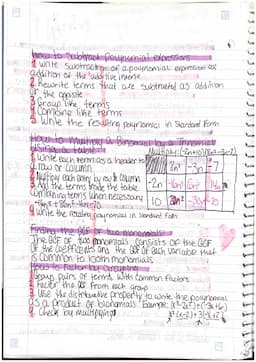 How to Subtract Polynomial expressions
1 Write subtraction of a polynomial expression as
addition of the additive inverse.
2 Rewrite terms that are subtracted as addition
of the opposite
3 Group like terms
4 Combine like terms
5 Write the resulting polynomial in Standard Form
How to Multiply a Binomial by a Trinomial
Using a table
Multiply:
1 Write each term as a header to
a row or column
2 Multiply each entry by row & column
3 Add the terms inside the table
combining terms when necessary
4 Write the resulting polynomial in Standard form
-2n
10
Finding the GCF of two monomials
The GCF of two monomials consists of the GCF
of the coefficients and the GCF of each variable that
is common to both monomials
How to Factor by Grouping
1 Group pairs of terms with common factors
2 Factor the GCF from each group
3 Use the distributive property to write the polynomial
as a product of binomials Example:
4 Check by multiplying